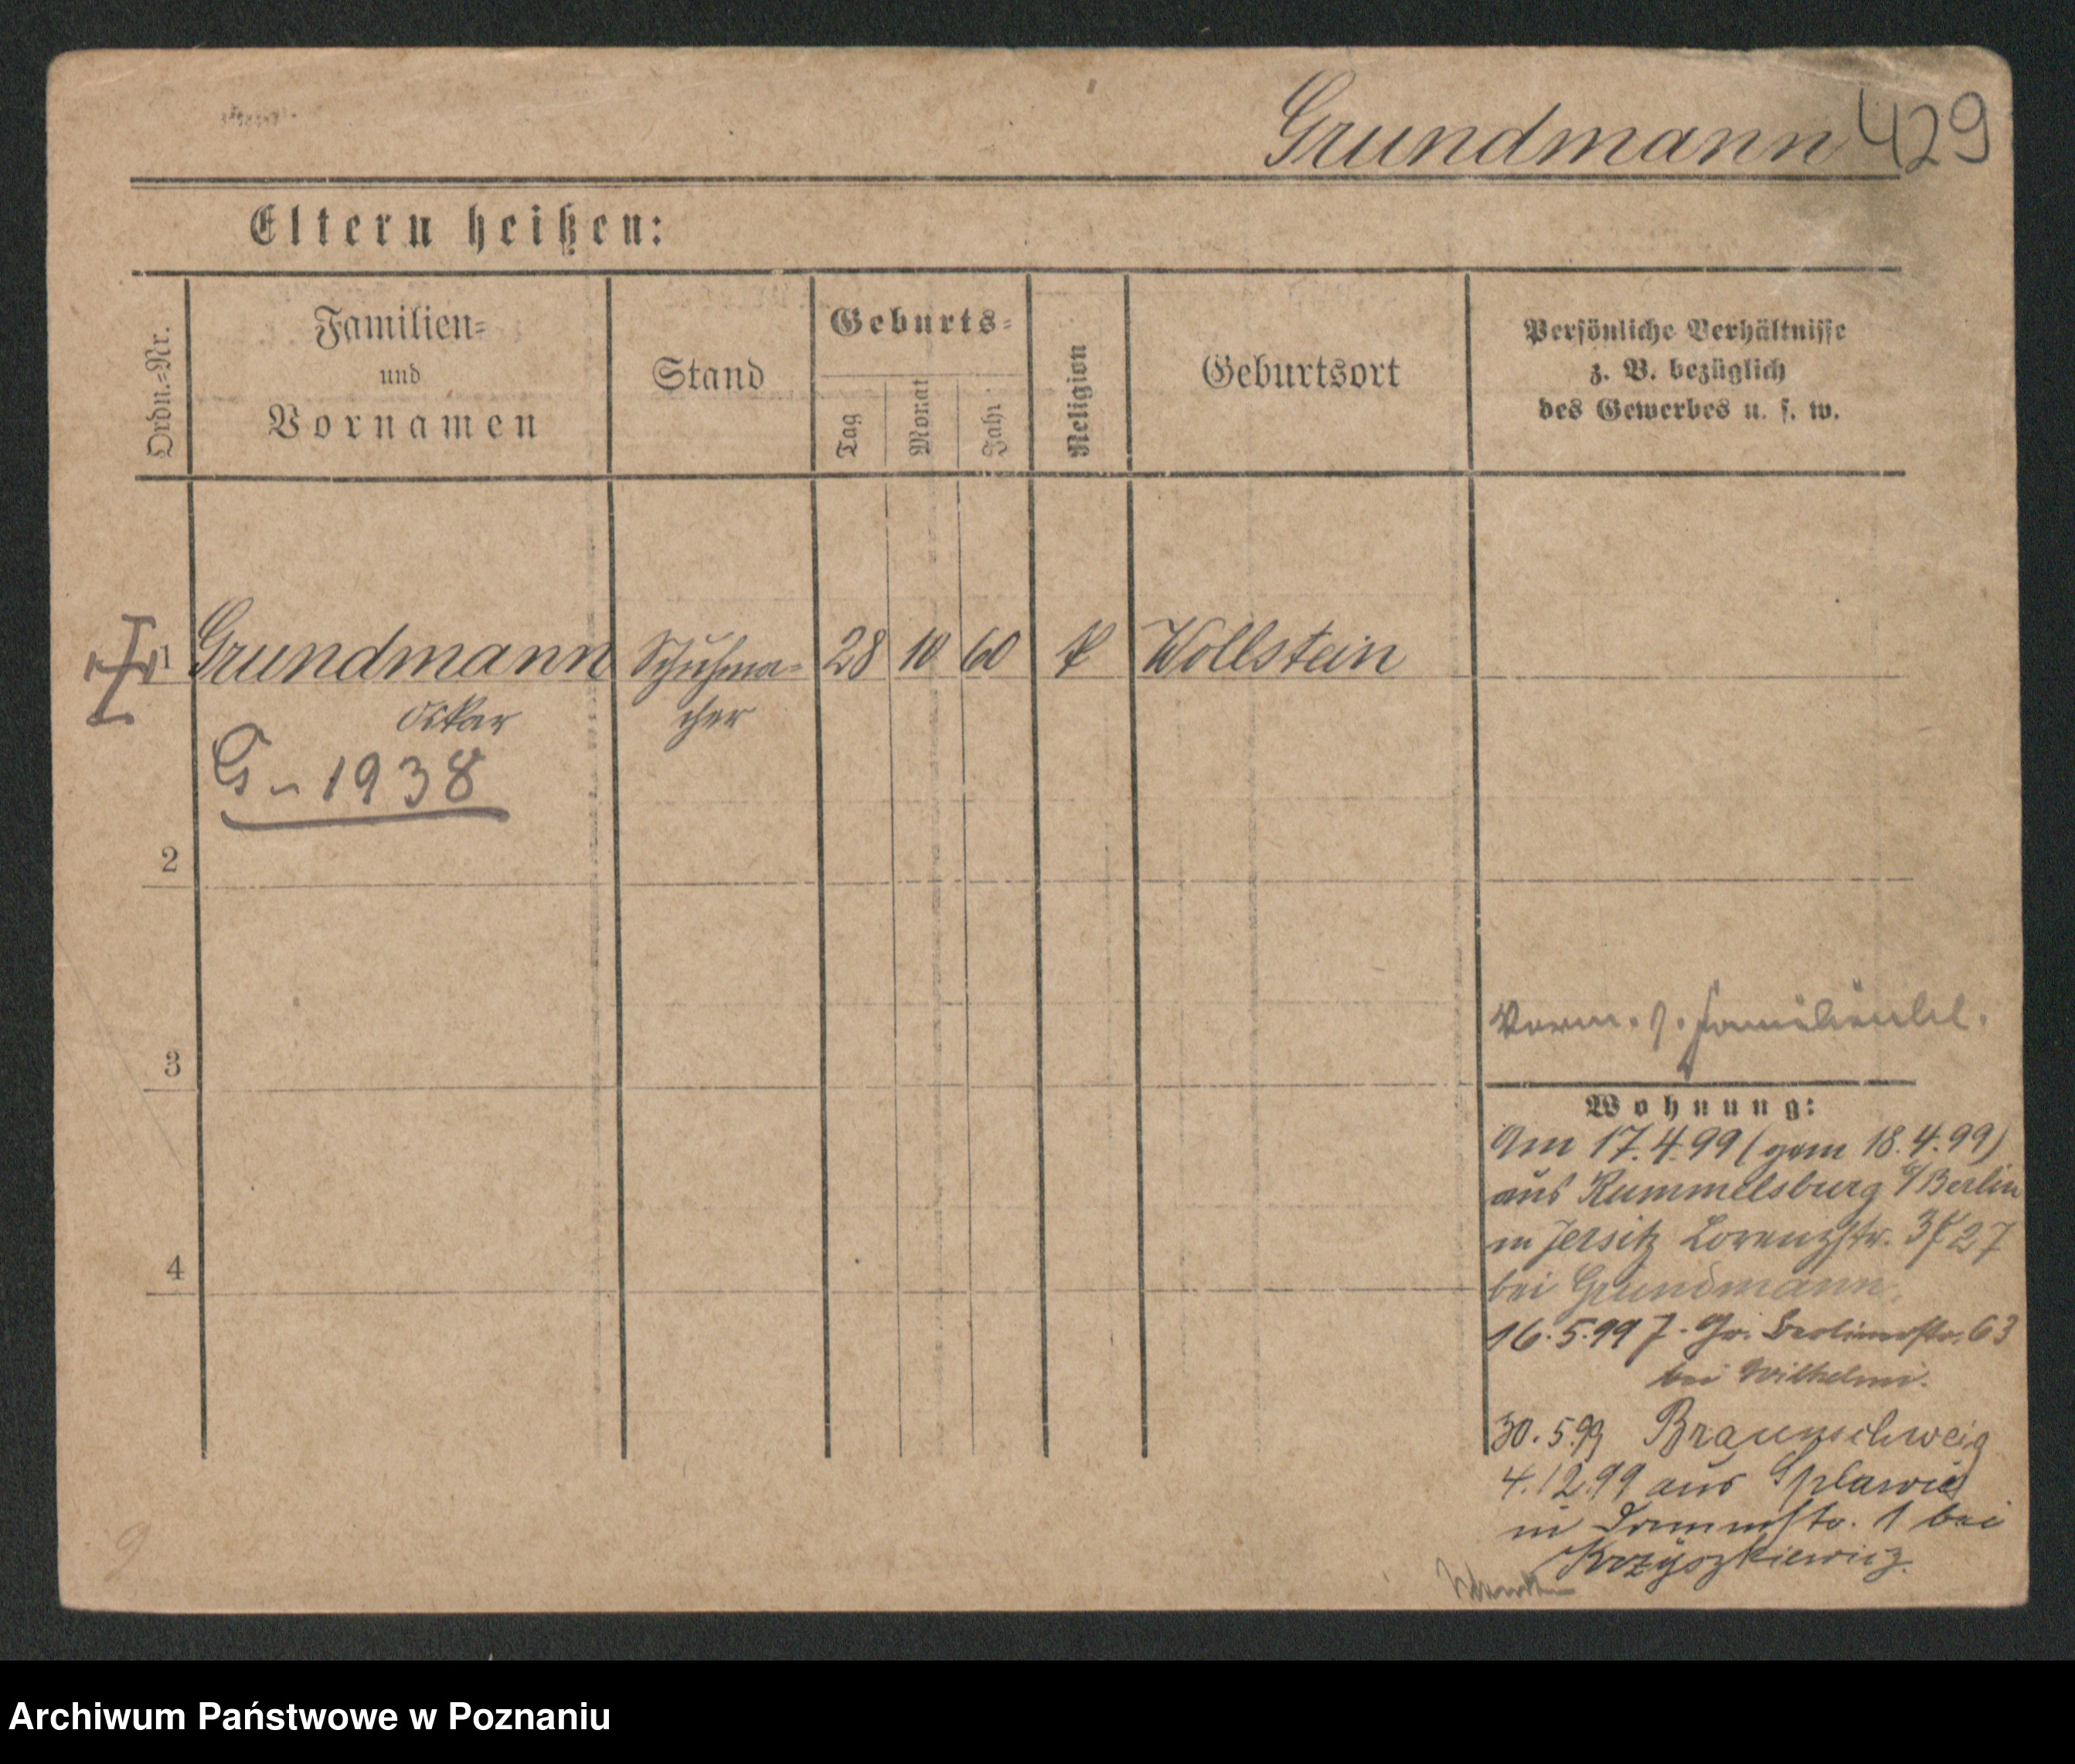 Grundmann 429
Eltern heißen:
Ordn.-Nr.
Familien-
und
Vornamen
Stand
Geburts-
Tag
Monat
Jahr
Religion
Geburtsort
Persönliche Verhältnisse
z. B. bezüglich
des Gewerbes u. s. w.
1 Grundmann Schuhma- 28 10 60 Wollstein
Oskar cher
G-1938
2
3
Verm. s. Familienbl.
Wohnung:
Am 17.4.99 (gem 18.4.99)
aus Rummelsburg b/Berlin
in Jersitz Lorenzstr. 27
bei Grundmann.
4
16.5.99 J. Gr. Berlinerstr. 63
bei Wilhelmi.
30.5.99 Braunschweig
4.12.99 aus Splawie
in 1 bei
Krzyszkiewicz.
Archiwum Państwowe w Poznaniu